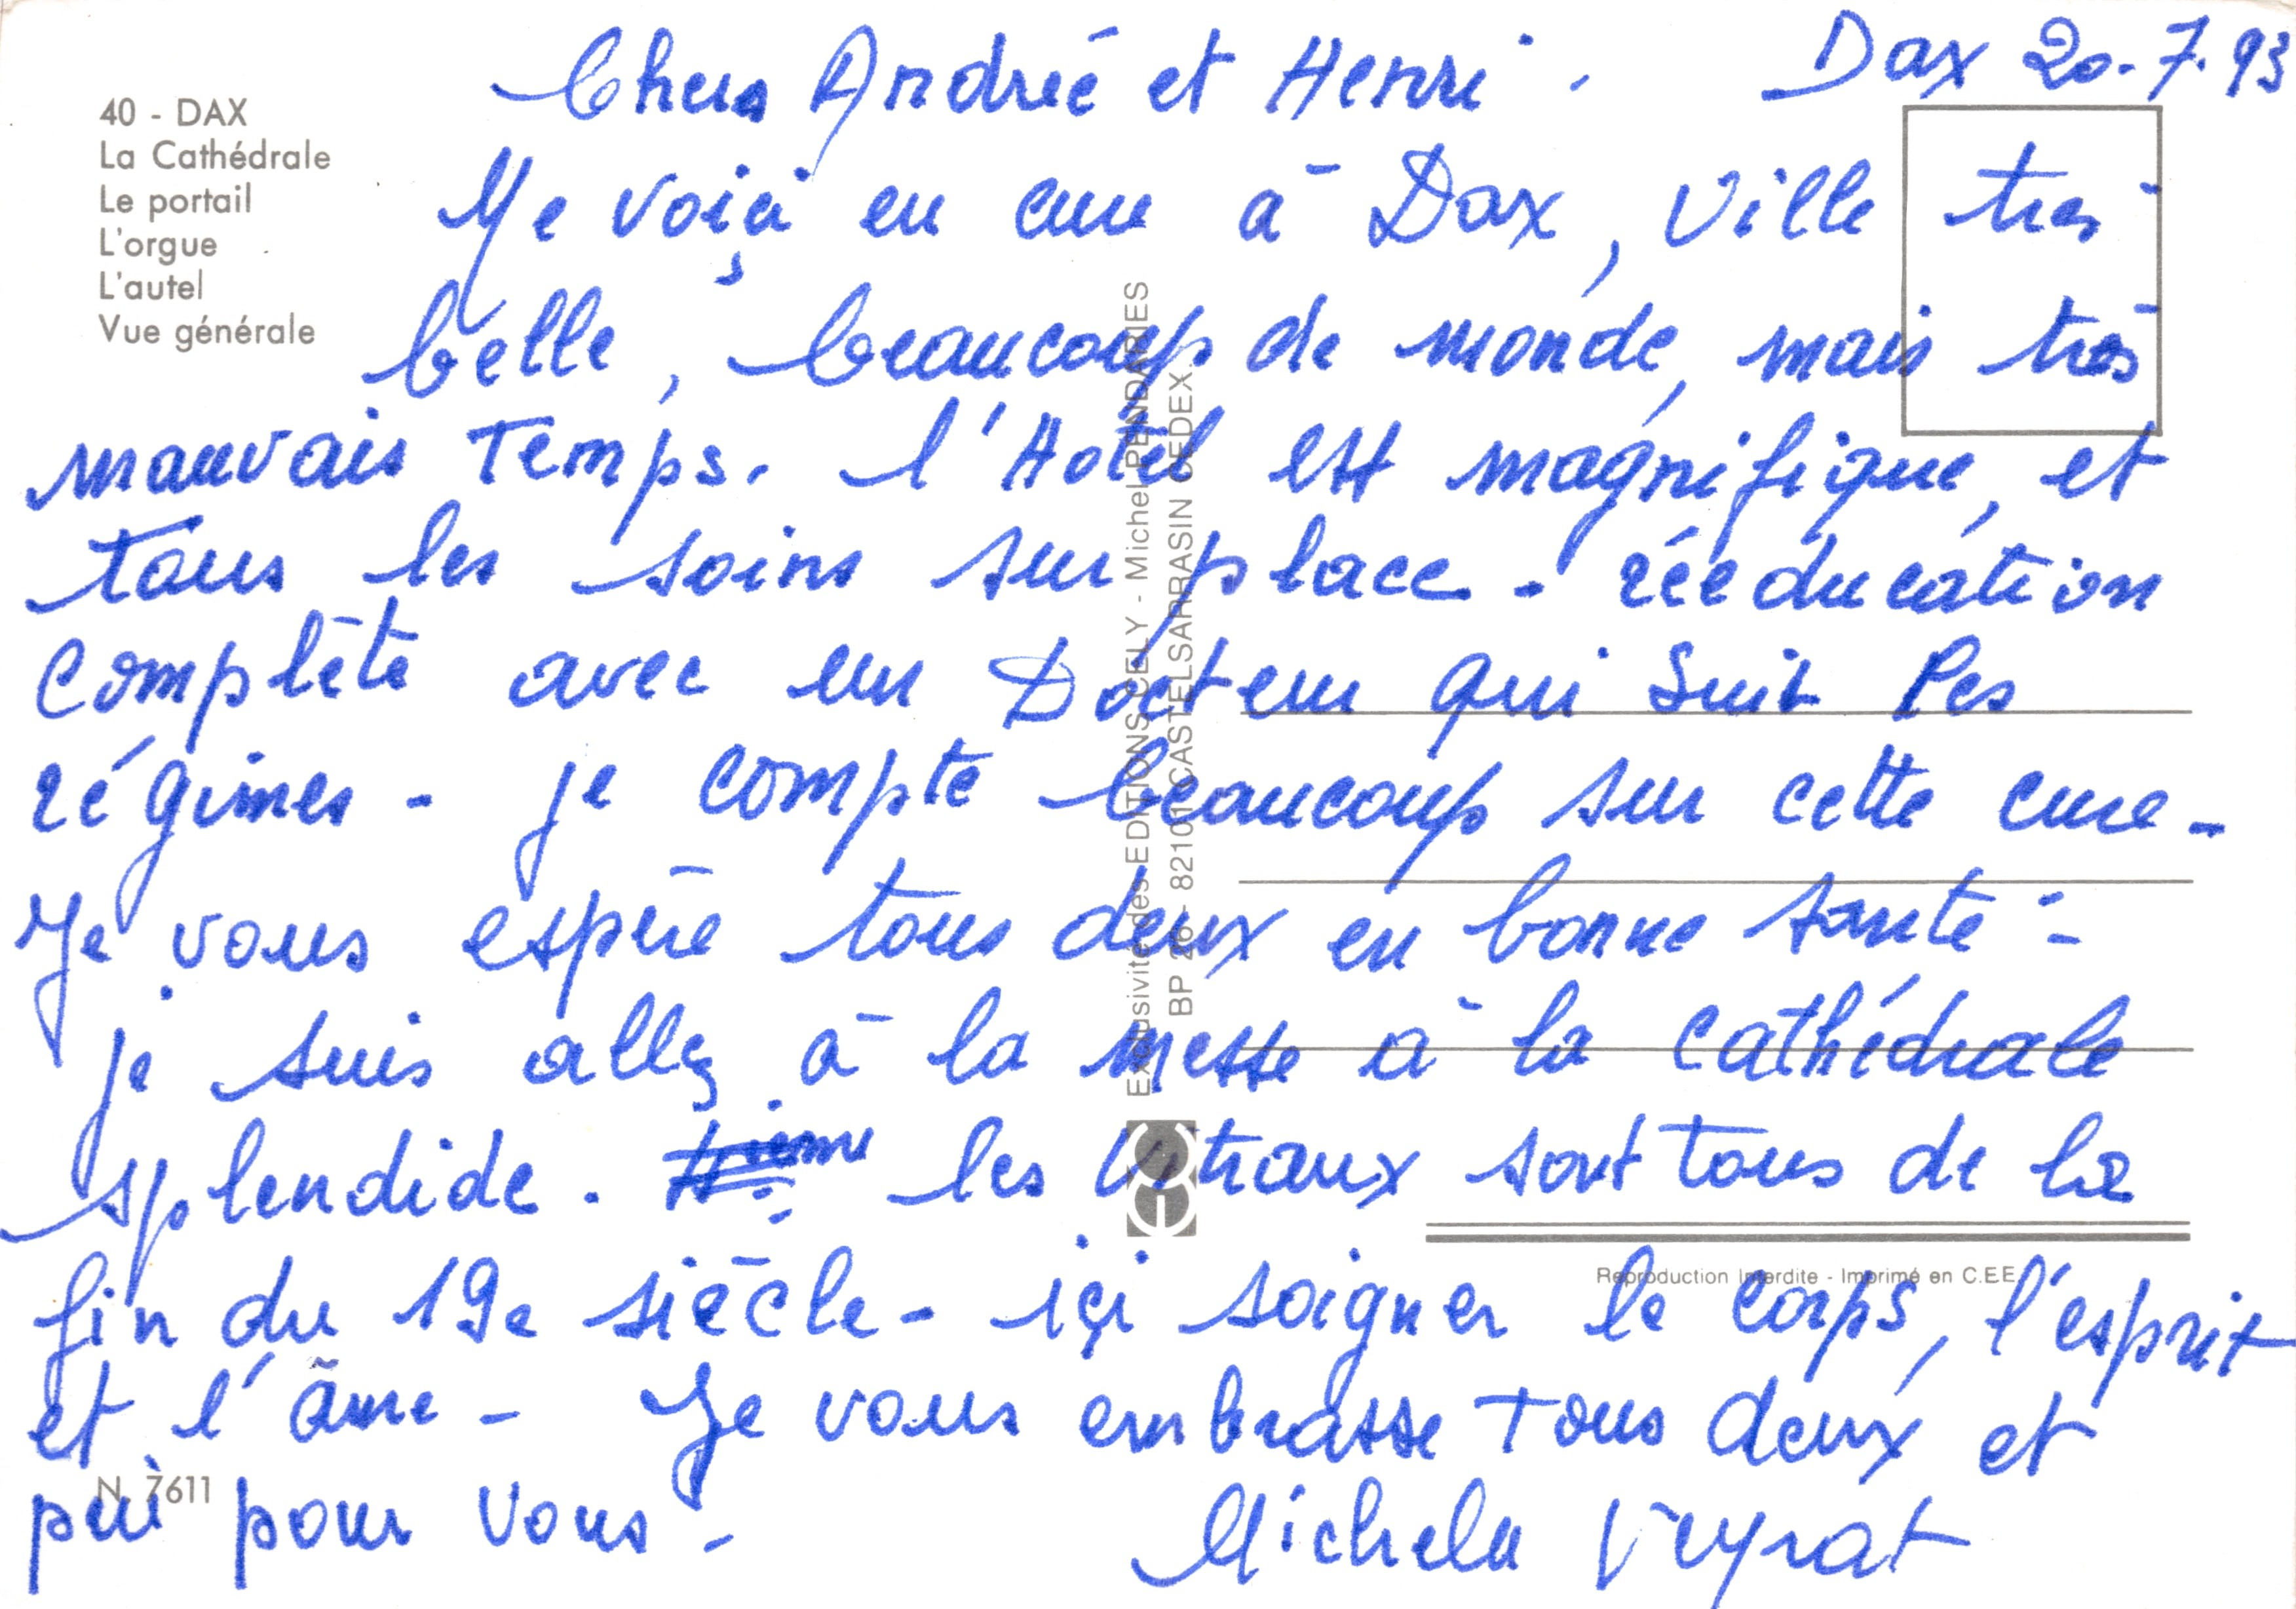 Dax 20.7.93
Chers Andrée et Henri.
40 - DAX
La Cathédrale
Le portail
L'orgue
L'autel
Vue générale
Me voiçi en cure à Dax, ville très
belle, beaucoup de monde, mais très
mauvais temps. l'Hotel est magnifique, et
tous les soins sur place - rééducation
complète avec un Docteur qui suit les
régimes - je compte beaucoup sur cette cure -
Je vous espère tous deux en bonne santé -
je suis allez à la messe à la cathédrale
splendide. les vitraux sont tous de la
fin du 19e siècle - içi soigner le corps, l'esprit
et l'âme - Je vous embrasse tous deux et
pui pour vous -
Veyrat
N. 7611
Exclusivité des EDITIONS CELY - Michel PENDARIES
BP 26 - 82101 CASTELSARRASIN CEDEX
Reproduction Interdite - Imprimé en C.E.E.